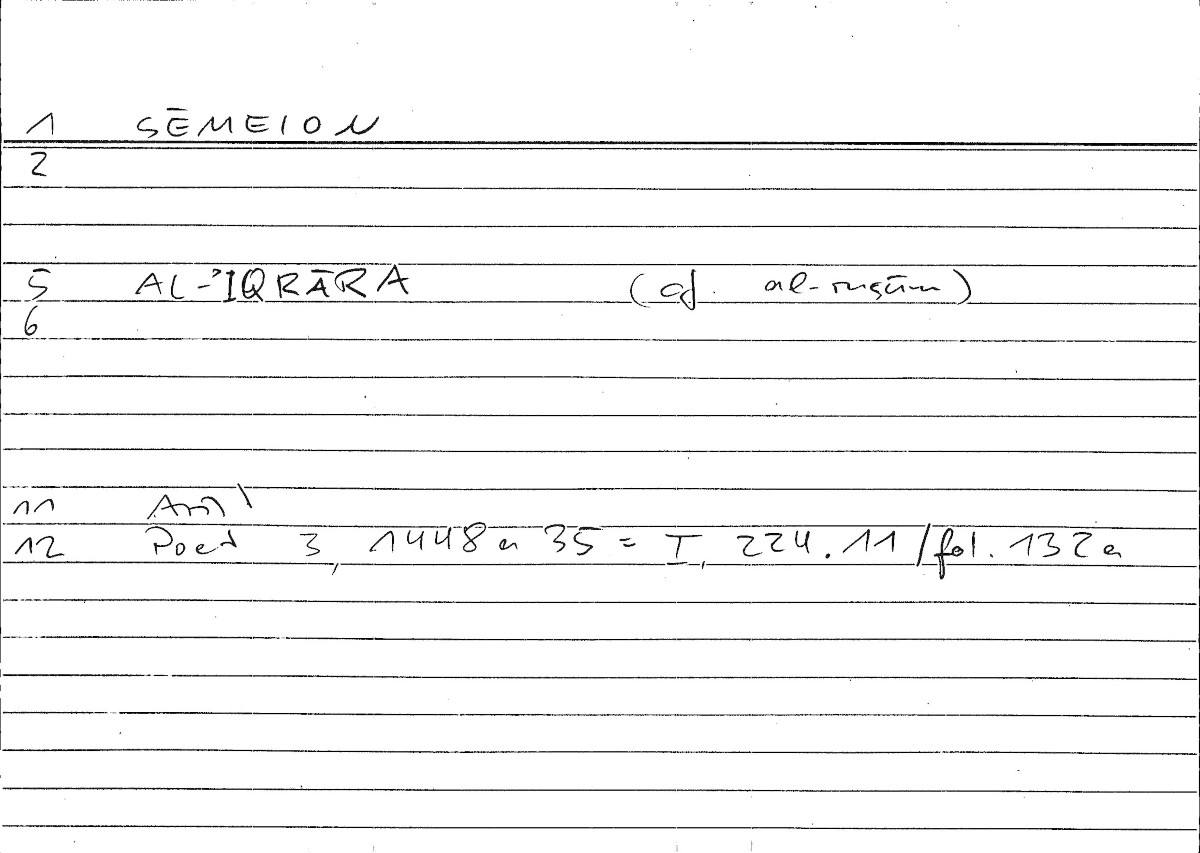 1 SĒMEION
2
5 AL-ʾIQRĀRA (cf. al-rusūm)
6
11
12 Poet 3, 1448 a 35 = I, 224.11/fol. 132a